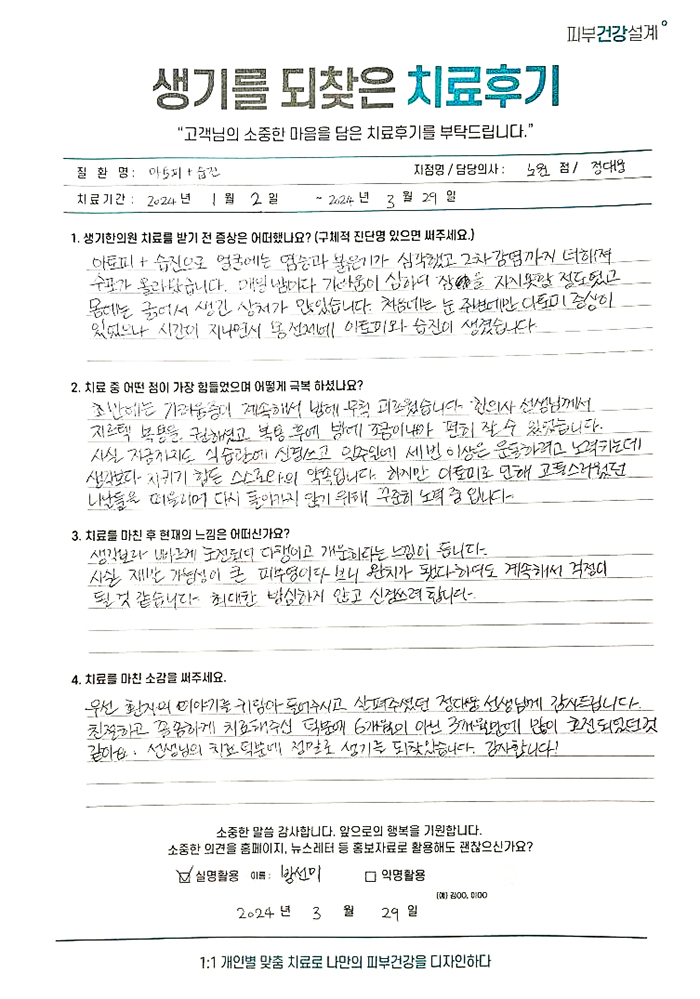 피부건강설계°
생기를 되찾은 치료후기
"고객님의 소중한 마음을 담은 치료후기를 부탁드립니다."
질 환 명 : 아토피 + 습진 지점명 / 담당의사 : 노원 점 / 정대웅
치료기간 : 2024 년 1 월 2 일 ~ 2024 년 3 월 29 일
1. 생기한의원 치료를 받기 전 증상은 어떠했나요? (구체적 진단명 있으면 써주세요.)
아토피 + 습진으로 얼굴에는 염증과 붉은기가 심각했고 2차감염까지 더해져
수포가 올라왔습니다. 매일 밤마다 가려움이 심하여 잠을 자지못할 정도였고
몸에는 긁어서 생긴 상처가 많았습니다. 처음에는 눈 주변에만 아토피 증상이
있었으나 시간이 지나면서 몸 전체에 아토피와 습진이 생겼습니다
2. 치료 중 어떤 점이 가장 힘들었으며 어떻게 극복 하셨나요?
초반에는 가려움증이 계속해서 밤에 무척 괴로웠습니다. 한의사 선생님께서
지르텍 복용을 권해주셨고 복용 후에 밤에 조금이나마 편히 잘 수 있었습니다.
사실 지금까지도 식습관에 신경쓰고 일주일에 세번 이상은 운동하려고 노력하는데
생각보다 지키기 힘든 스스로와의 약속입니다. 하지만 아토피로 인해 고통스러웠던
나날들을 떠올리며 다시 돌아가지 않기 위해 꾸준히 노력 중 입니다.
3. 치료를 마친 후 현재의 느낌은 어떠신가요?
생각보다 빠르게 호전되어 다행이고 개운하다는 느낌이 듭니다.
사실 재발 가능성이 큰 피부염이다 보니 완치가 됐다 하여도 계속해서 걱정이
될 것 같습니다. 최대한 방심하지 않고 신경쓰려 합니다.
4. 치료를 마친 소감을 써주세요.
우선 환자의 이야기를 귀담아 들어주시고 살펴주셨던 정대웅 선생님께 감사드립니다.
친절하고 꼼꼼하게 치료해주신 덕분에 6개월이 아닌 3개월만에 많이 호전 되었던것
같아요. 선생님의 치료 덕분에 정말로 생기를 되찾았습니다. 감사합니다!
소중한 말씀 감사합니다. 앞으로의 행복을 기원합니다.
소중한 의견을 홈페이지, 뉴스레터 등 홍보자료로 활용해도 괜찮으신가요?
☑ 실명활용 이름 : 방선미 □ 익명활용
(예) 김OO, 이OO
2024 년 3 월 29 일
1:1 개인별 맞춤 치료로 나만의 피부건강을 디자인하다